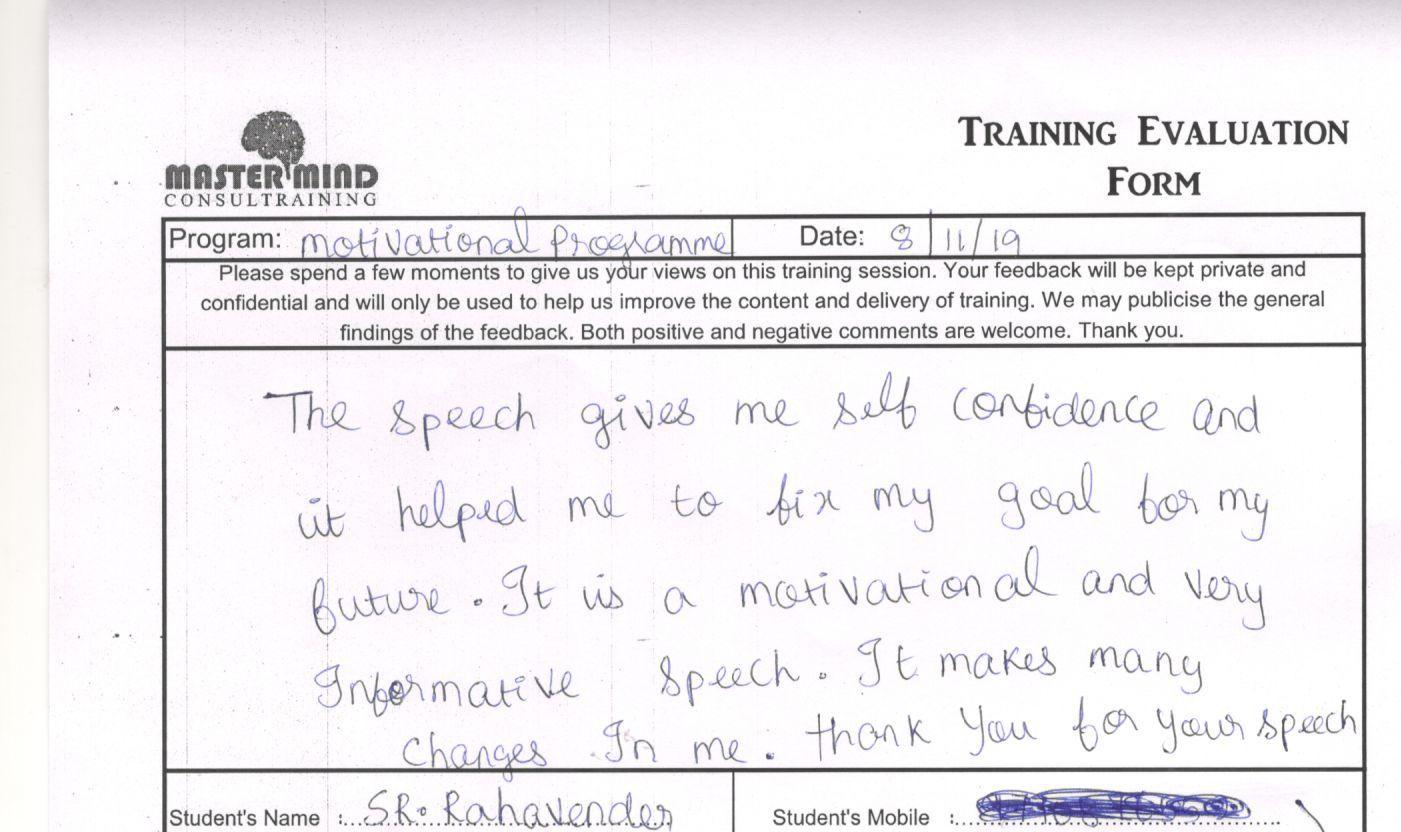 TRAINING EVALUATION
FORM
MASTER MIND
CONSULTRAINING
Program: motivational programme Date: 8/11/19
Please spend a few moments to give us your views on this training session. Your feedback will be kept private and
confidential and will only be used to help us improve the content and delivery of training. We may publicise the general
findings of the feedback. Both positive and negative comments are welcome. Thank you.
The speech gives me self confidence and
it helped me to fix my goal for my
future. It is a motivational and very
Informative speech. It makes many
changes In me. thank you for your speech
Student's Name :... S.R. Rahavender
Student's Mobile :...